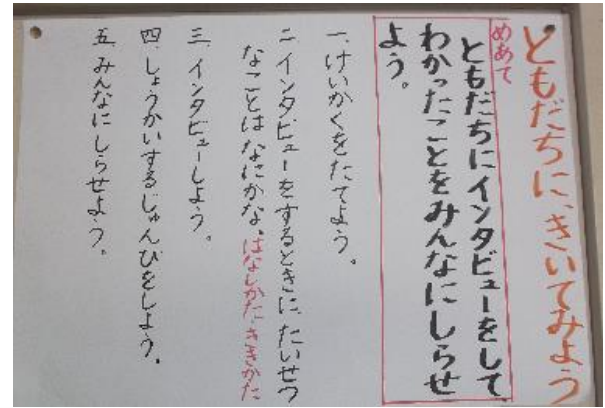 ともだちに、きいてみよう
めあて
ともだちにインタビューをして、
わかったことをみんなにしらせ
よう。
一、けいかくをたてよう。
二、インタビューをするときに、たいせつ
なことはなにかな。はなしかた・ききかた
三、インタビューしよう。
四、しょうかいするじゅんびをしよう。
五、みんなにしらせよう。